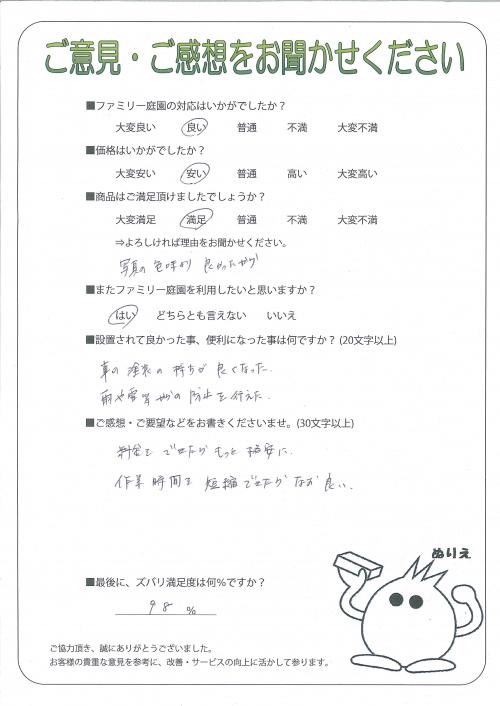 ご意見・ご感想をお聞かせください
■ファミリー庭園の対応はいかがでしたか？
大変良い 良い 普通 不満 大変不満
■価格はいかがでしたか？
大変安い 安い 普通 高い 大変高い
■商品はご満足頂けましたでしょうか？
大変満足 満足 普通 不満 大変不満
⇒よろしければ理由をお聞かせください。
写真の色味が良かったから
■またファミリー庭園を利用したいと思いますか？
はい どちらとも言えない いいえ
■設置されて良かった事、便利になった事は何ですか？(20文字以上)
車の塗装の持ちが良くなった.
雨や雪等の防止を行えた.
■ご感想・ご要望などをお書きくださいませ。(30文字以上)
料金をできたらもっと格安に.
作業時間を短縮できたらなお良い.
ぬりえ
■最後に、ズバリ満足度は何%ですか？
98 %
ご協力頂き、誠にありがとうございました。
お客様の貴重な意見を参考に、改善・サービスの向上に活かして参ります。